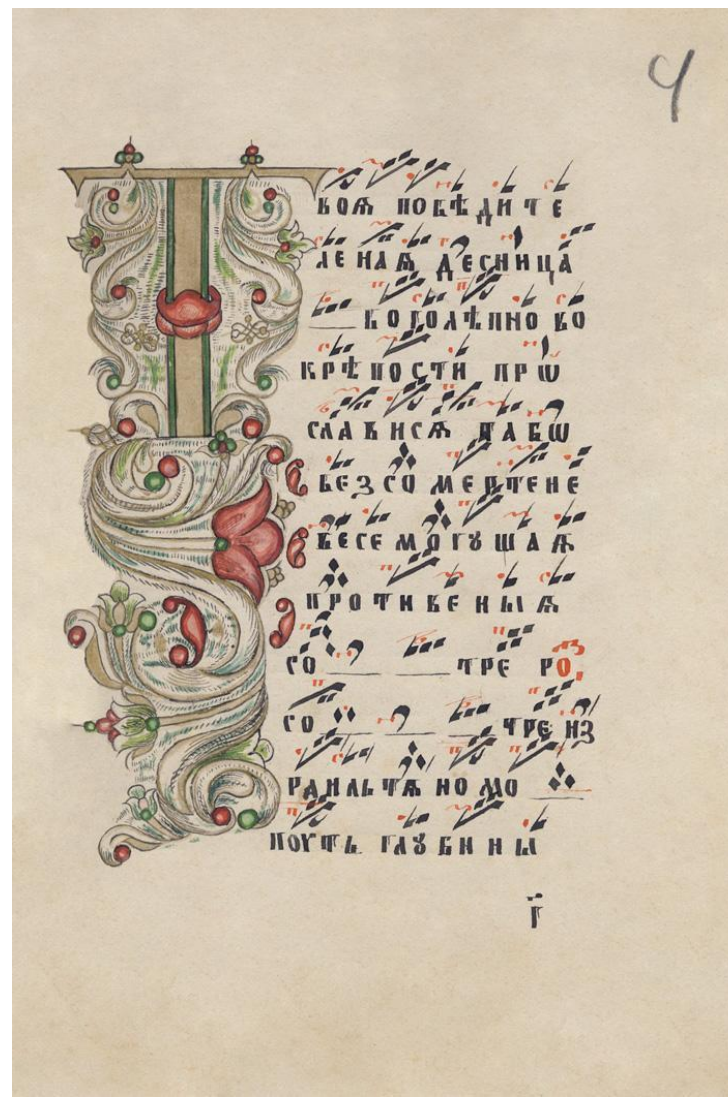 Ч
Т
воѧ побѣдите
ленаѧ десница
боголѣпно во
крѣпости прѡ
слависѧ табѡ
безсо мертене
весе могꙋщаѧ
противеныѧ
со тре ро,
со тре из
раильтѧномо
поуть глꙋбины
г҃